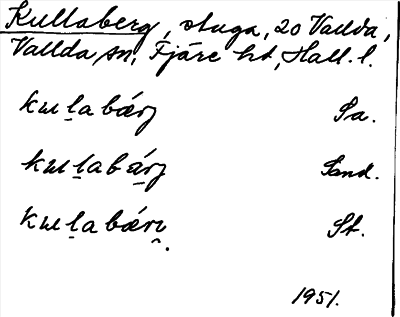 Kullaberg, stuga, 20 Vallda,
Vallda sn, Fjäre hd, Hall. l.
kɯḻabǽrj Sa.
kɯḻabá̱rj Sand.
kɯḻabǽrı̯. St.
1951.